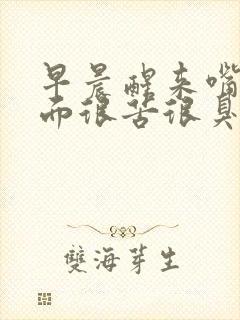 早晨醒来嘴
而很苦很臭
雙海芽生